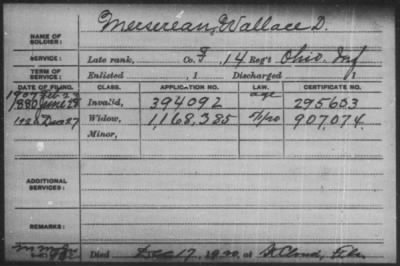 NAME OF SOLDIER: Mersereau, Wallace D.
SERVICE: Late rank, Co. F, 14 Reg't Ohio Inf
TERM OF SERVICE: Enlisted , 1 Discharged , 1
DATE OF FILING. CLASS. APPLICATION NO. LAW. CERTIFICATE NO.
1907 Feb age
1880 June 28 Invalid, 394092 295603
Dec 27 Widow, 1,168,385 907,074.
Minor,
ADDITIONAL SERVICES:
REMARKS:
Died Dec 17, 1920, at St Cloud, Fla.